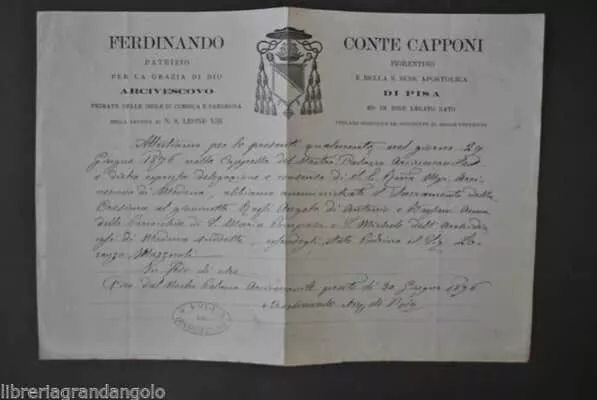 FERDINANDO CONTE CAPPONI
PATRIZIO FIORENTINO
PER LA GRAZIA DI DIO E DELLA S. SEDE APOSTOLICA
ARCIVESCOVO DI PISA
PRIMATE DELLE ISOLE DI CORSICA E SARDEGNA ED IN ESSE LEGATO NATO
DELLA SANTITÀ DI N. S. LEONE XIII
Attestiamo per le presenti qualmente nel giorno 29
Giugno 1896 nella Cappella del Nostro Palazzo Arcivescovile
dietro espressa delegazione e consenso di S. E.
di Modena, abbiamo amministrato il Sacramento della
Cresima al giovinetto Angelo di Antonio e
della Parrocchia di S. Maria e S. Michele dell'
di Modena suddetta, essendogli stato Padrino il Sig.
In fede di che
Pisa dal Nostro Palazzo Arcivescovile questo dì 30 Giugno 1896
+ Ferdinando Arc. di Pisa
libreriagrandangolo